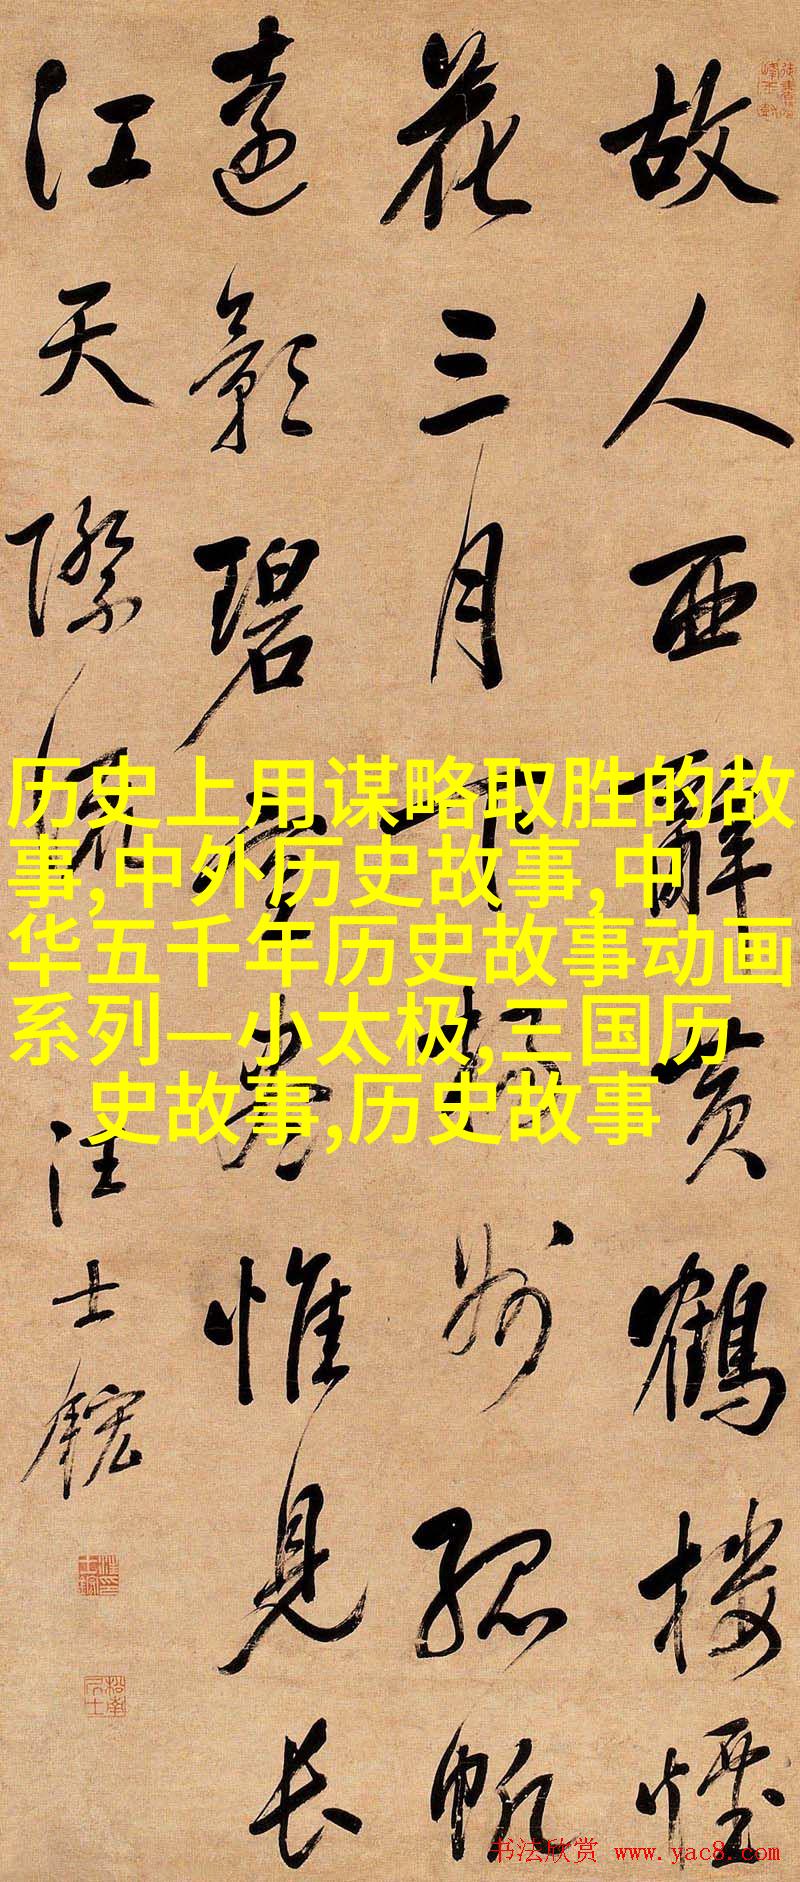 故人西辭黃鶴樓煙
花三月下揚州孤帆
遠影碧空盡惟見長
江天際流 汪士鋐
历史上用谋略取胜的故
事,中外历史故事,中
华五千年历史故事动画
系列—小太极,三国历
史故事,历史故事
书法欣赏 www.yac8.com